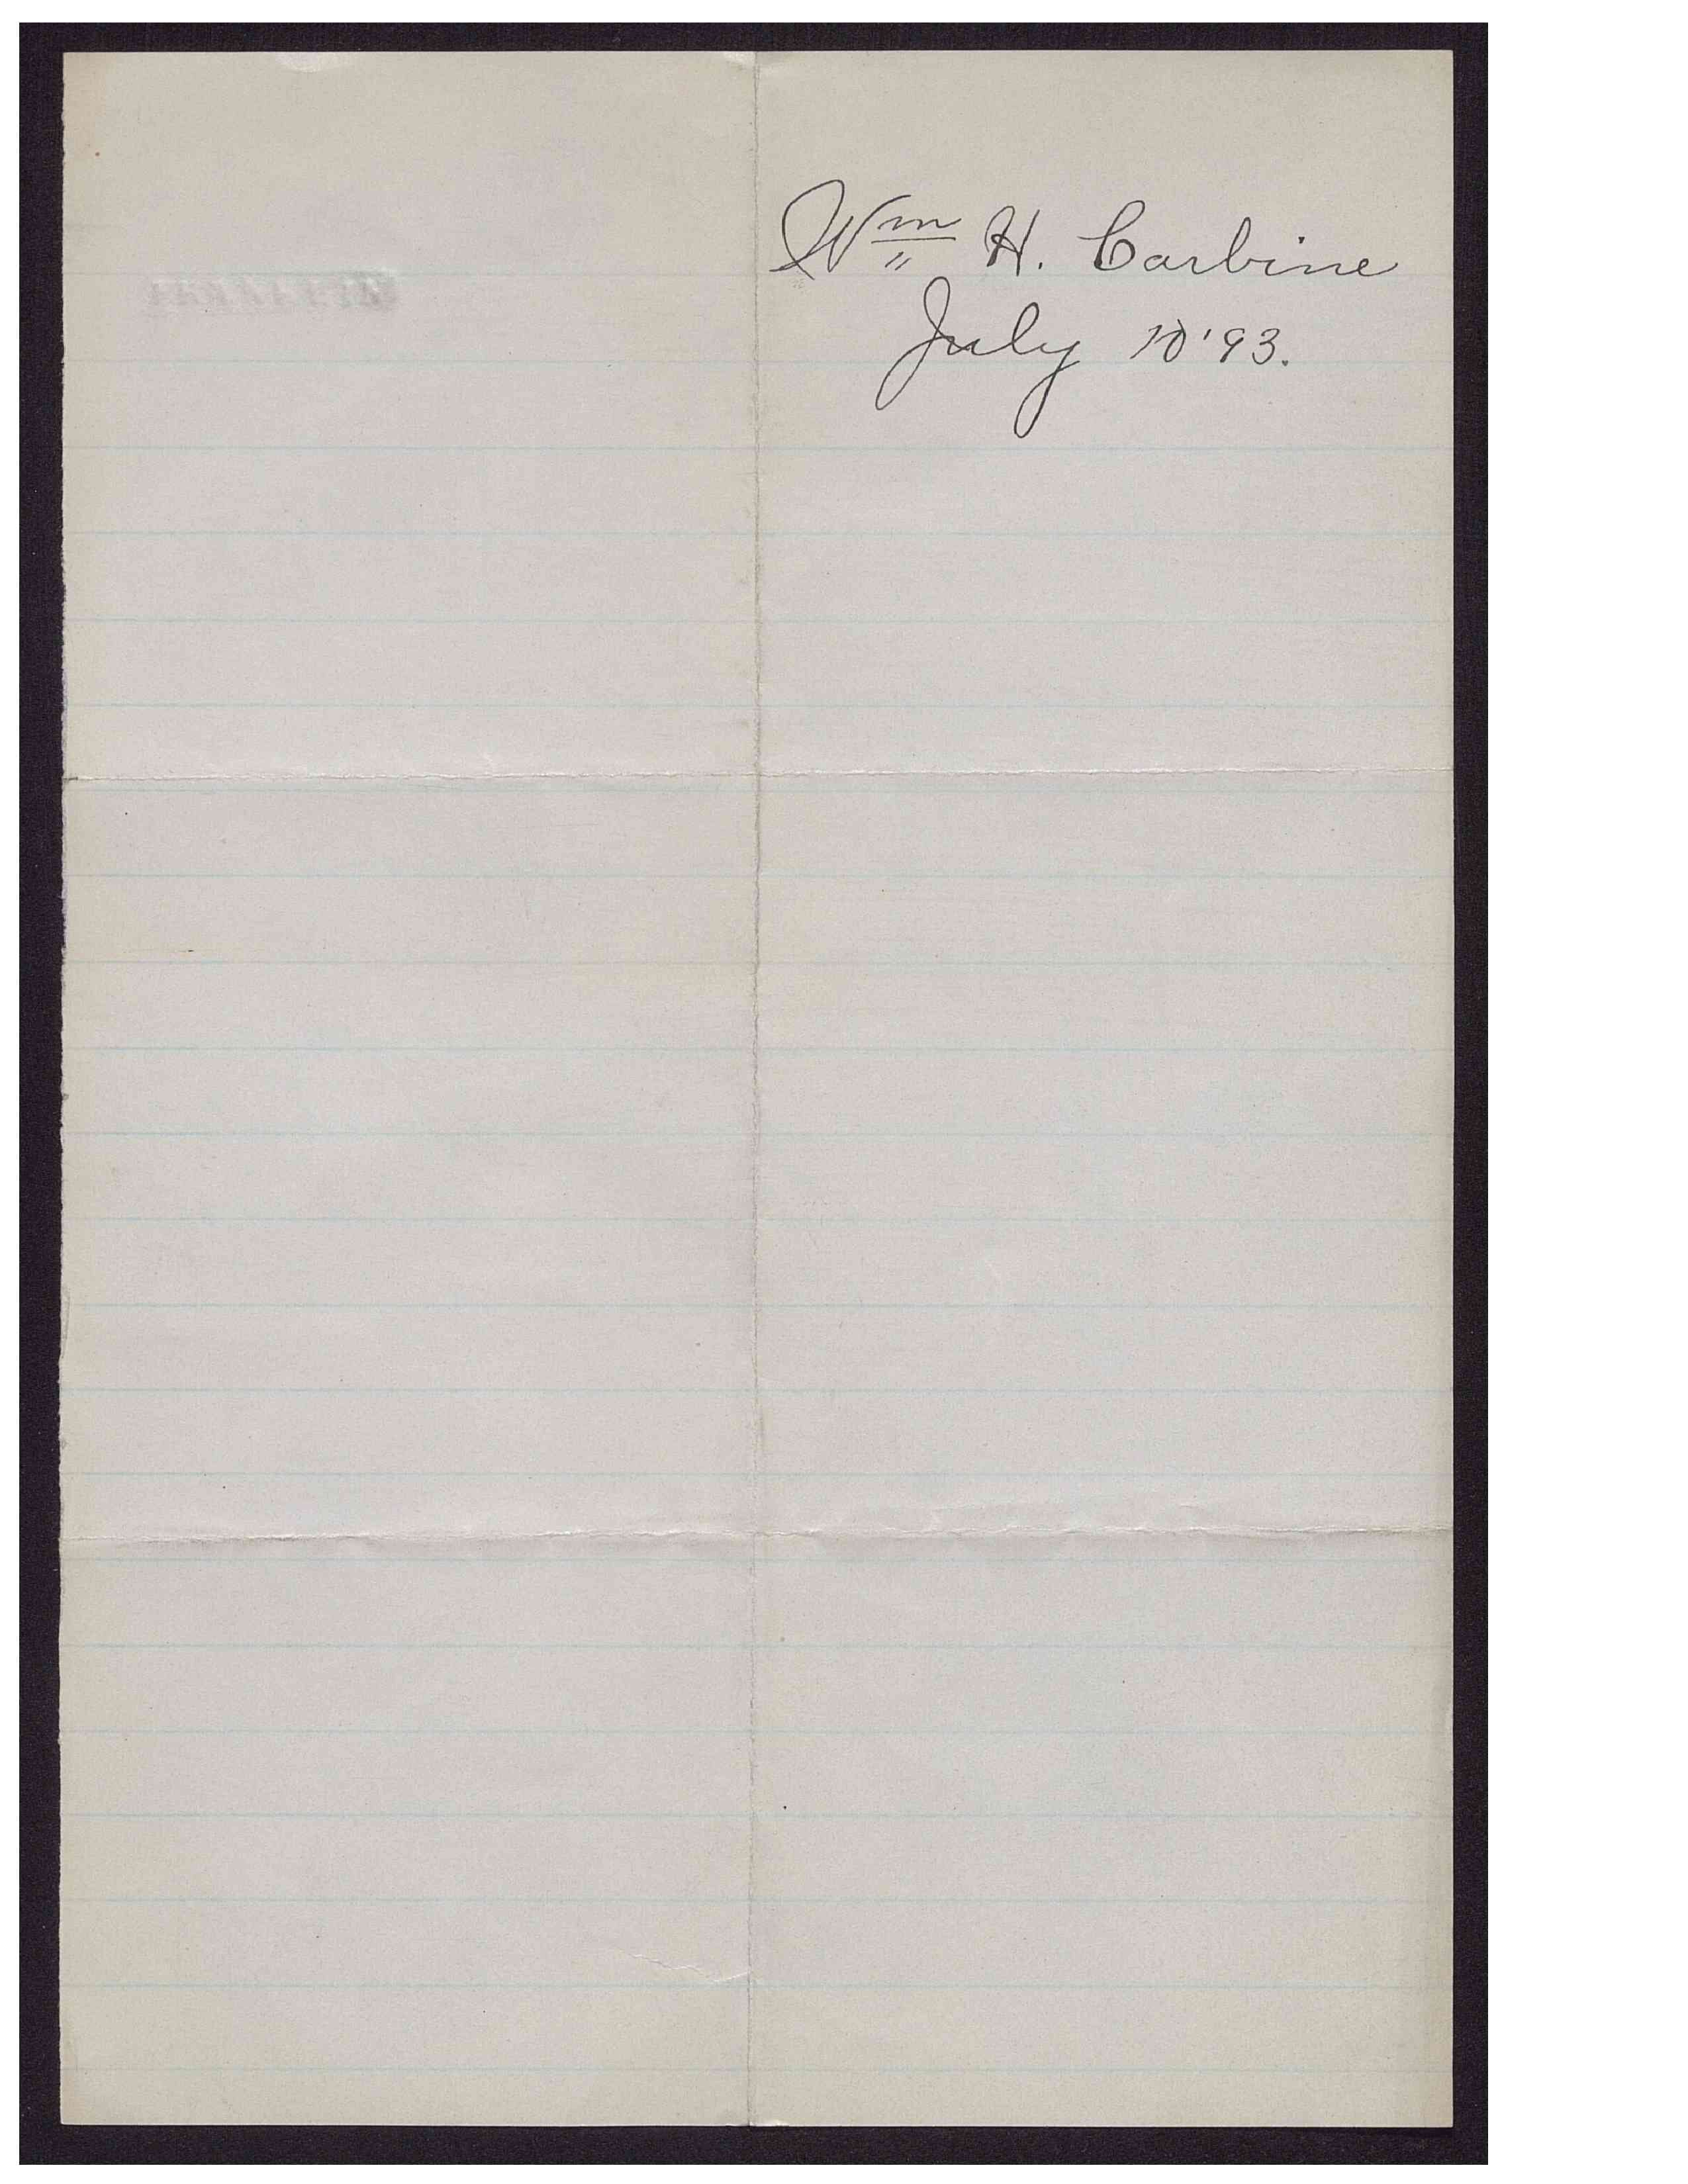 Wm H. Carbine
July 10 '93.